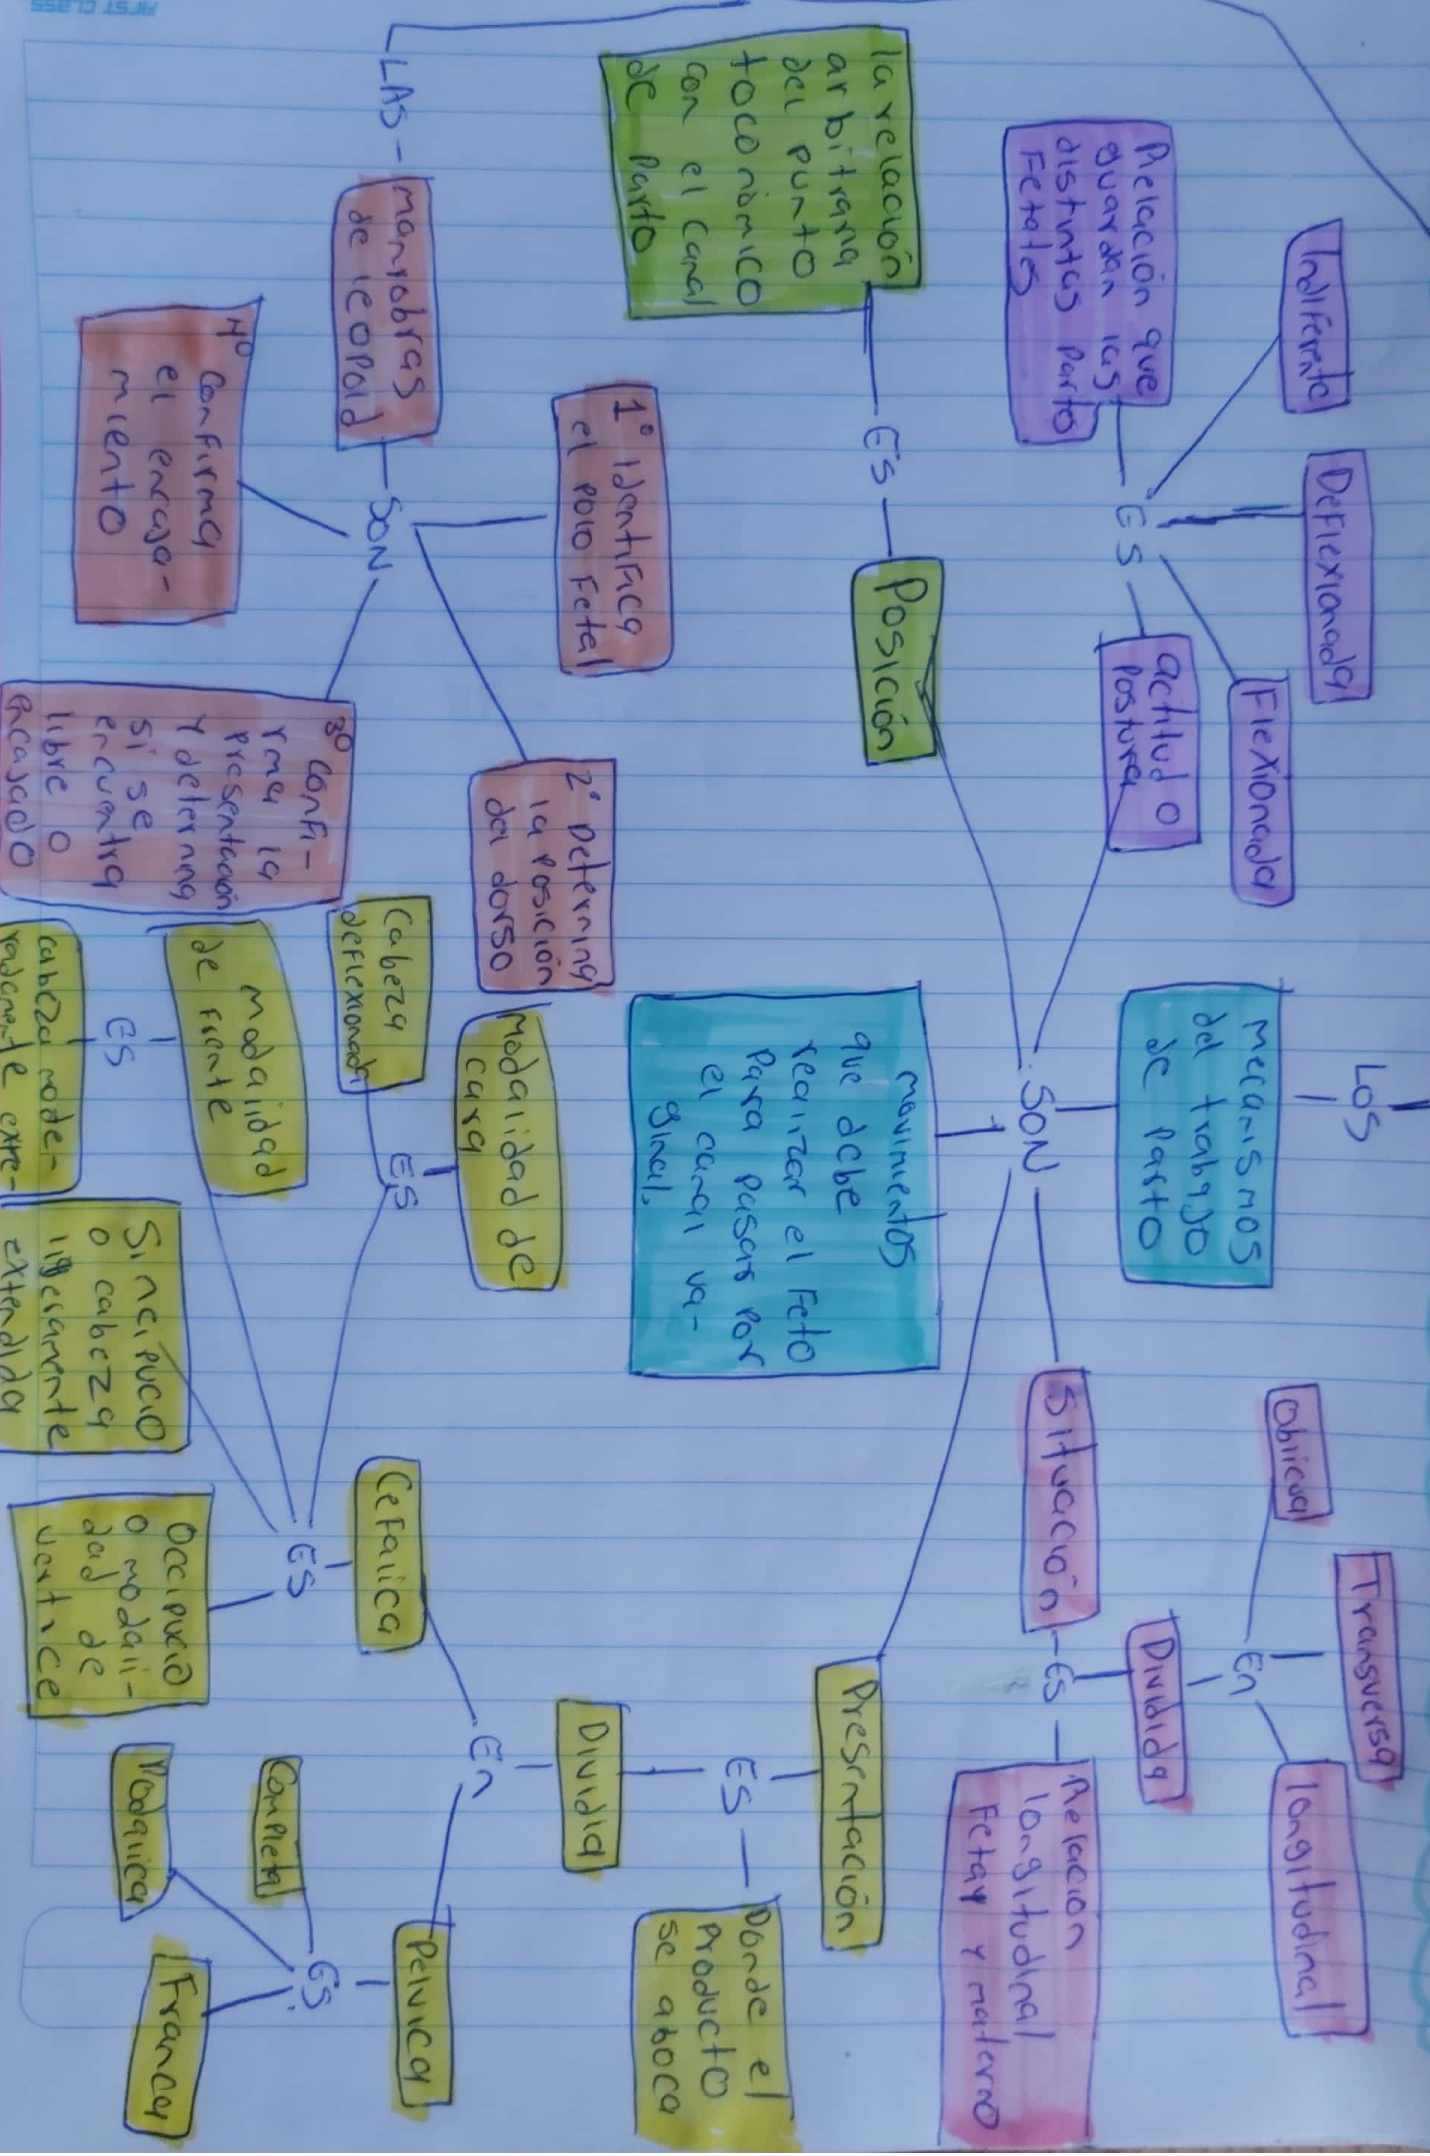 FIRST CLASS
LOS
Mecanismos
del trabajo
de Parto
SON
Movimientos
que debe
realizar el Feto
Para pasar por
el canal va-
ginal.
Indiferente
Deflexionada
Flexionada
Relación que
guardan las
distintas partes
Fetales
ES
actitud o
Postura
la relación
arbitraria
del punto
toconómico
con el canal
de Parto
ES
Posición
Oblicua
Transversa
longitudinal
En
Dividida
Situación
ES
Relacion
longitudinal
Fetay y materno
Presentación
ES
Donde el
Producto
se aboca
Dividia
En
Cefalica
ES
Modalidad de
cara
ES
Cabeza
deflexionada
Modalidad
de Frente
ES
cabeza mode-
radamente exte-
Sincipucio
o cabeza
ligeramente
extendida
Occipucio
o modali-
dad de
vertice
Pelvica
ES
Completa
Podalica
Franca
LAS
Maniobras
de leopold
SON
1° Identifica
el polo Fetal
2° Determina
la posición
del dorso
3° Confi-
rma la
presentación
y determina
si se
encuentra
libre o
encajado
4° Confirma
el encaja-
miento